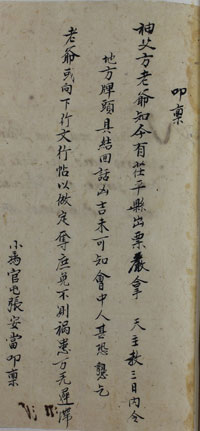 叩禀
神父方老爺知今有茌平縣出票嚴拿 天主教三日內令
地方牌頭具結回話凶吉未可知會中人甚恐懼乞
老爺或向下行文行帖以做定奪庶免不測禍患万无遲滯
小馮官屯張安當叩禀